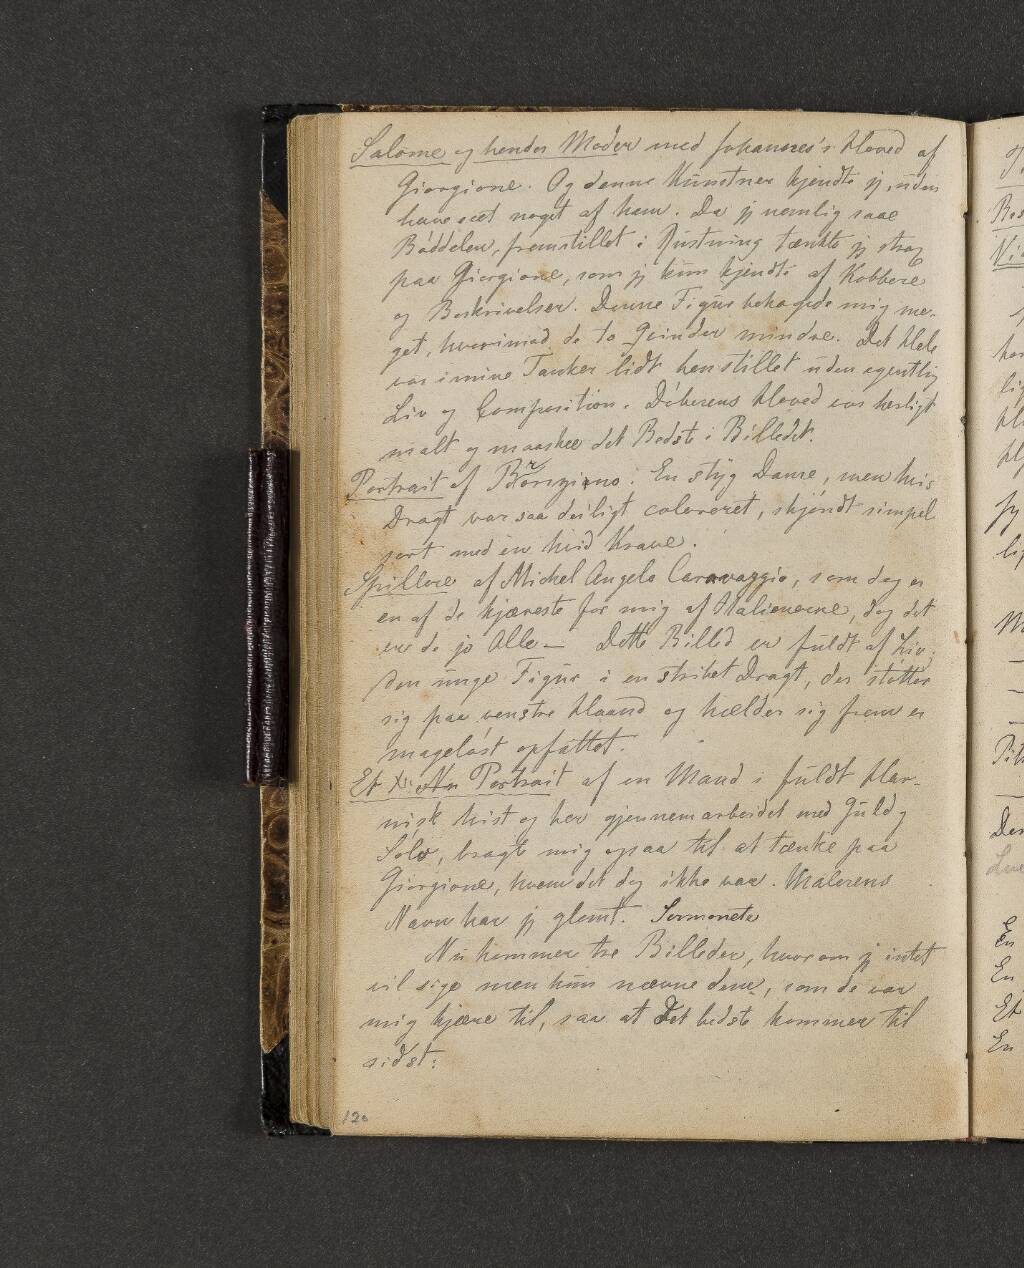 Salome og hendes Moder med Johannes's Hoved af
Giorgione. Og denne Kunstner kjendte jeg, uden
have seet noget af ham. Da jeg nemlig saae
Bøddelen, fremstillet i Rustning tænkte jeg strax
paa Giorgione, som jeg kun kjendte af Kobbere
og Beskrivelser. Denne Figur behagede mig me-
get, hvorimod de to Qvinder mindre. Det Hele
var i mine Tanker lidt henstillet uden egentlig
Liv og Composition. Døberens Hoved var herligt
malt og maaskee det Bedste i Billedet.
Portrait af . En styg Dame, men hvis
Dragt var saa deiligt coloreret, skjøndt simpel
sort med en hvid Krave.
Spillere af Michel Angelo Caravaggio, som dog er
en af de kjæreste for mig af Italienerne, dog det
ere de jo Alle — Dette Billed er fuldt af Liv,
den unge Figur i en stribet Dragt, der støtter
sig paa venstre Haand og hælder sig frem er
mageløst opfattet.
Et Portrait af en Mand i fuldt Har-
nisk hist og her gjennemarbeidet med Guld og
Sølv, bragte mig ogsaa til at tænke paa
Giorgione, hvem det dog ikke var. Malerens
Navn har jeg glemt. Sermoneta
Nu kommer tre Billeder, hvorom jeg intet
vil sige men kun nævne dem, som de var
mig kjære til, saa at Det bedste kommer til
sidst:
120